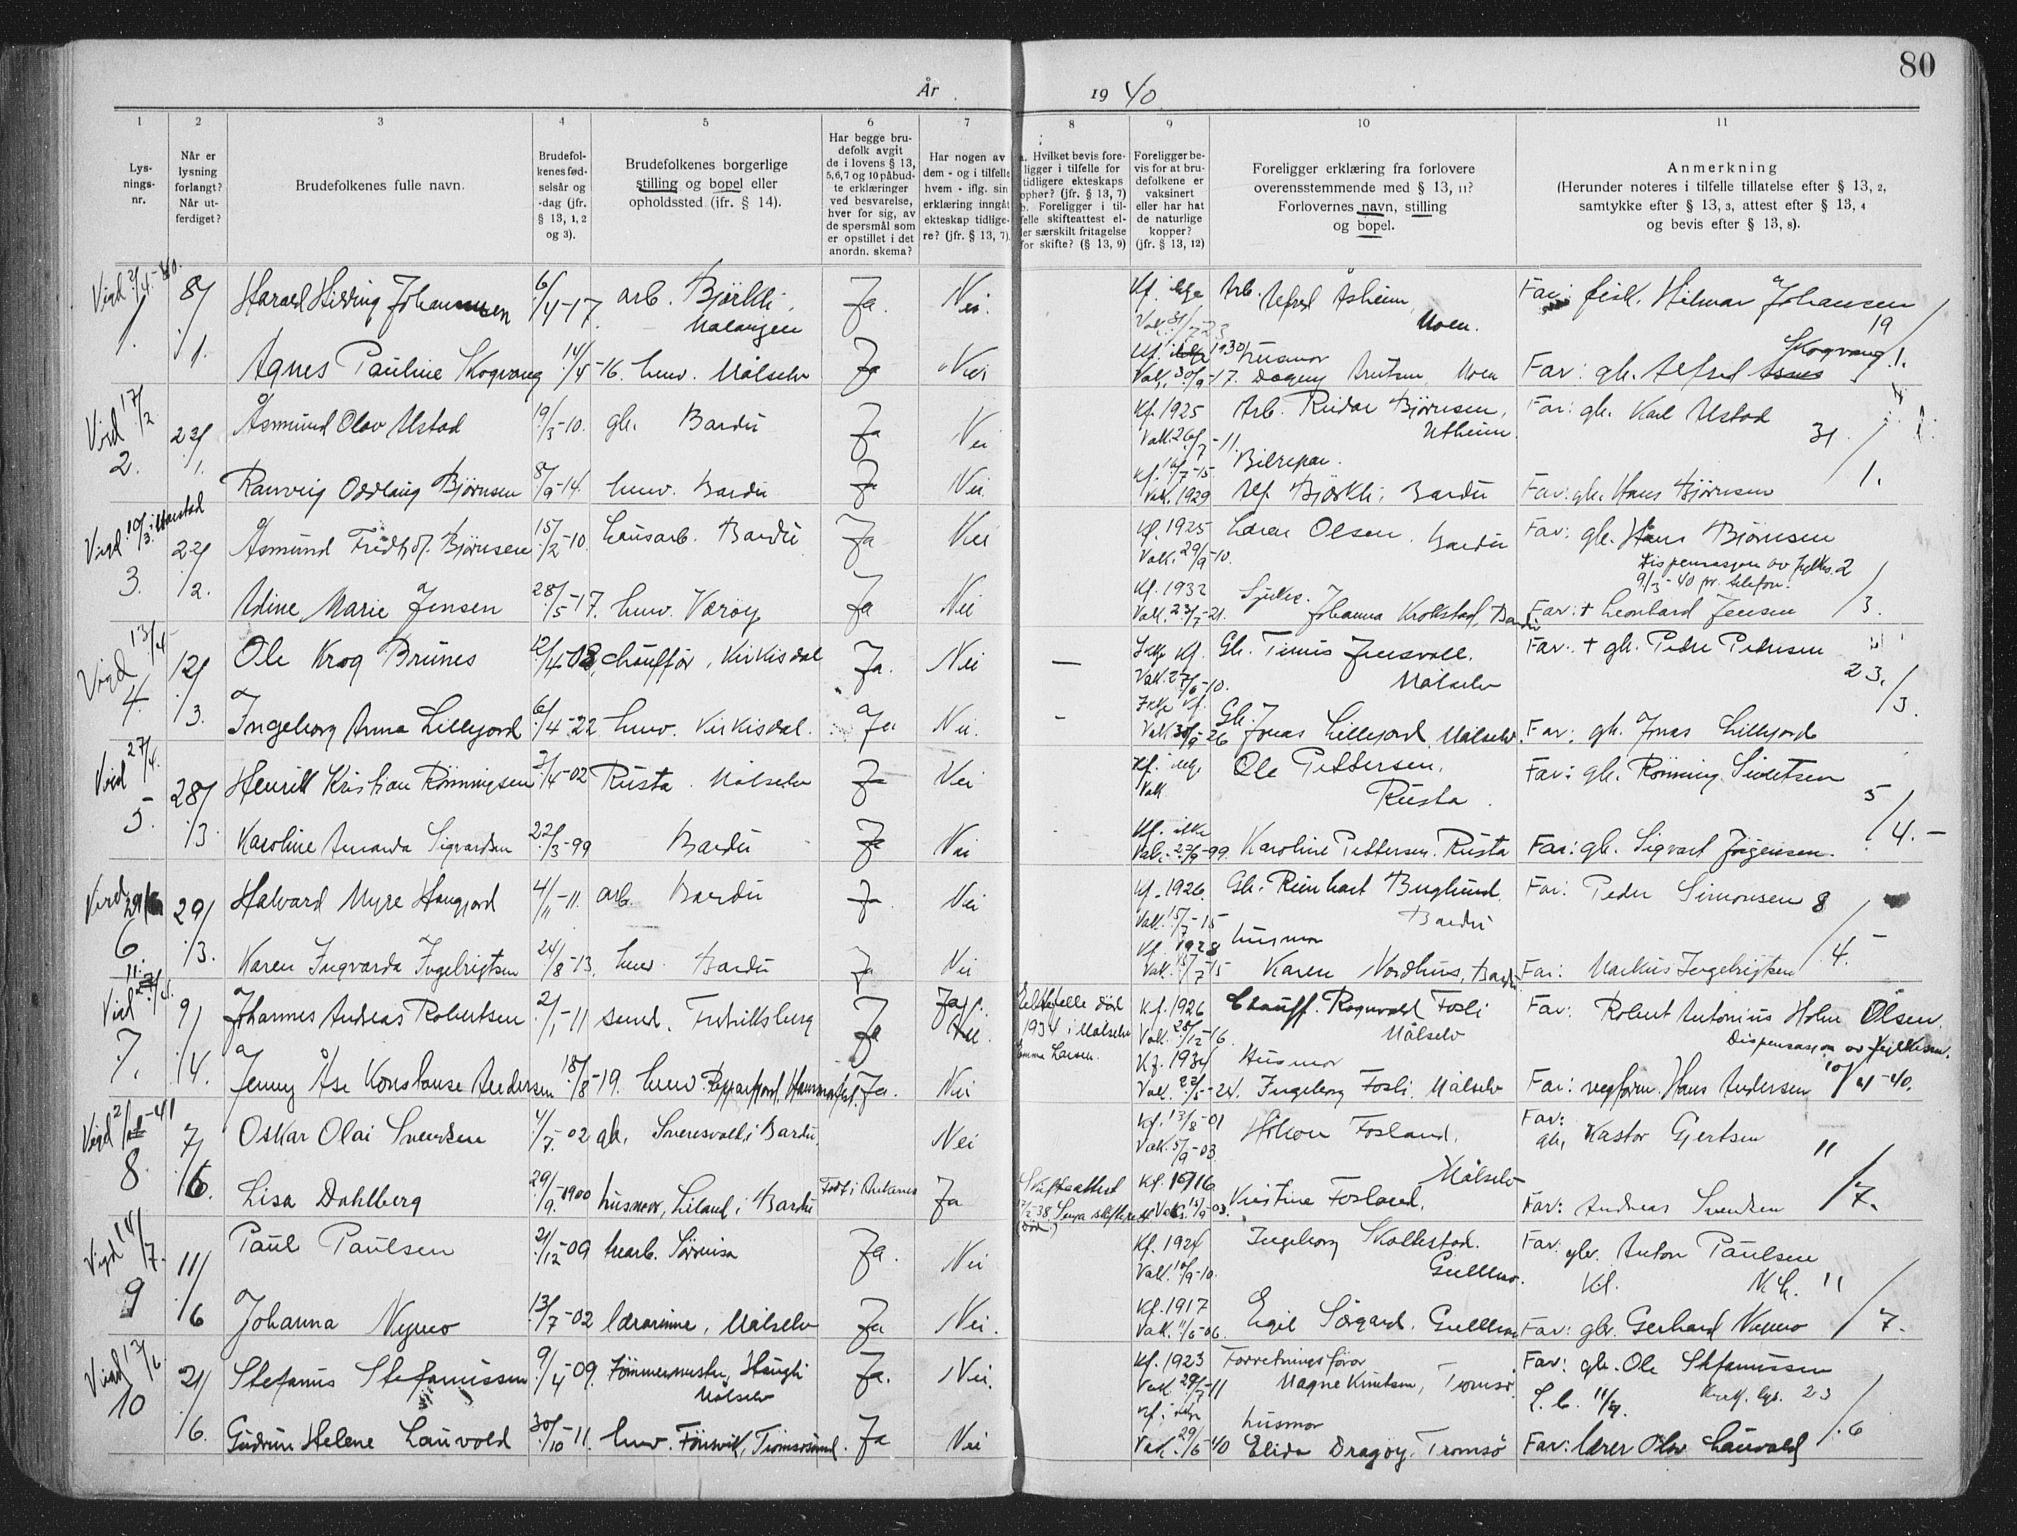 80
År 1940
1 2 3 4 5 6 7 8 9 10 11
Lys-
nings-
nr.
Når er
lysning
forlangt?
Når ut-
ferdiget?
Brudefolkenes fulle navn.
Brudefol-
kenes fød-
selsår og
-dag (jfr.
§ 13, 1, 2
og 3).
Brudefolkenes borgerlige
stilling og bopel eller
opholdssted (ifr. § 14).
Har begge bru-
defolk avgit
de i lovens § 13,
5, 6, 7 og 10 påbud-
te erklæringer
ved besvarelse,
hver for sig, av
de spørsmål som
er opstillet i det
anordn. skema?
Har nogen av
dem - og i tilfelle
hvem - iflg. sin
erklæring inngått
ekteskap tidlige-
re? (jfr. § 13, 7).
a. Hvilket bevis fore-
ligger i tilfelle for
tidligere ekteskaps
opher? (jfr. § 13, 7)
b. Foreligger i til-
felle skifteattest el-
ler særskilt fritagelse
for skifte? (§ 13, 9)
Foreligger be-
vis for at bru-
defolkene er
vaksinert
eller har hat
de naturlige
kopper?
(jfr. § 13, 12)
Foreligger erklæring fra forlovere
overensstemmende med § 13, 11?
Forlovernes navn, stilling
og bopel.
Anmerkning
(Herunder noteres i tilfelle tillatelse efter § 13, 2,
samtykke efter § 13, 3, attest efter § 13, 4
og bevis efter § 13, 8).
Vigd 2/4-40.
1. 8/1. Harald Hilding Johansen 6/4-17. arb. Bjørkli, Malangen Ja. Nei. Kf. ikke Arb. Alfred Åsheim, Moen. Far: fisk. Hilmar Johansen
19/1.
Agnes Pauline Skogvang 14/4-16. huv. Målselv Ja Nei Kf. 1930 husmor Vak. 30/9-17. Dagny Knutsen, Moen Far: gb. Alfred Skogvang
Viet 17/2
2. 22/1. Åsmund Olav Ustad 19/3-10. gb. Bardu Ja Nei Kf. 1925 Vak. 26/7-11. Arb. Reidar Bjørnsen, Utheim. Far: gb. Karl Ustad
31/1.
Ranveig Oddlaug Bjørnsen 8/9-14. huv. Bardu Ja Nei Kf. 16/7-15 Vak. 1929 Bilrepar. Alf Bjørkli, Bardu Far: gb. Hans Bjørnsen
Vigd 10/3. i Harstad
3. 22/2. Åsmund Fridtjof Bjørnsen 15/2-10. hausarb. Bardu Ja Nei Kf. 1925 Vak. 29/9-10. Lærer Olsen, Bardu Far: gb. Hans Bjørnsen
Dispensasjon av fylkes.
9/3-40 pr. telefon.
2/3.
Adine Marie Jensen 28/5-17. huv. Værøy Ja Nei Kf. 1932 Vak. 23/7-21. Sjukes. Johanna Krokstad, Bardu Far: + Leonhard Jensen
Vigd 13/4
4. 12/3. Ole Krog Brunes 12/4-08 chauffør, Kirkesdal Ja. Nei — Ikke Kf. Vak. 27/6-10. Gb. Tinus Jensvoll. Målselv Far: + gb. Peder Pedersen
23./3.
Ingeborg Anna Lillefjord 6/4-22 huv. Kirkesdal. Ja Nei. - Ikke Kf. Vak. 30/9-26 Gb. Jonas Lillefjord, Målselv. Far: gb. Jonas Lillefjord
Viet 27/4.
5. 28/3. Henrik Kristian Rønningsen 3/4-02 Rusta. Målselv Ja Nei Kf. ikke Vak Ole Pettersen, Rusta. Far: gb. Rønning Sivertsen
5/4.-
Karoline Amanda Sigvardsen 22/3-99 Bardu Ja Nei Kf. ikke Vak. 23/9-99. Karoline Pettersen. Rusta Far: gb. Sigvart Jørgensen.
6. 29/3. Halvard Myre Haugjord 4/11-11. arb. Bardu Ja. Nei Kf. 1926. Vak. 15/7-15 Gb. Reinhart Berglund, Bardu Far: Peder Simonsen
8/4.-
Karen Ingvarda Ingebrigtsen 24/8-13. huv. Bardu Ja Nei Kf. 1928 Vak. 15/7-15 husmor Karen Nordhus, Bardu Far: Markus Ingebrigtsen
7. 9/4. Johannes Andreas Robertsen 2/1-11 send. Fredriksberg Ja Ja. Ektefelle død 1934 i Målselv Emma Larsen. Kf. 1926 Vak. 28/12-16. Chauff. Ragnvald Fosli Målselv Far: Robert Antonius Holm Olsen.
Dispensasjon av fylkesm. 10/4-40.
Jenny Åse Konstanse Andersen 18/8-19. huv. Repparfjord, Hammerfest. Ja. Nei Kf. 1934 Vak. 22/5-24. Husmor Ingeborg Fosli, Målselv Far: vegform. Hans Andersen
8. 7/6. Oskar Olai Svendsen 4/7-02 gb. Sveresvoll, i Bardu, Nei Kf. 13/8-01 Vak. 5/9-03. Håkon Fosland, Målselv Far: gb. Kastor Gjertsen
11/7.
Lisa Dahlberg 29/9-1900 husmor, Liland i Bardu Født i Ankenes Ja Skifteattest Senja skifterett (død) Kf. 1916 Kristine Fosland, Far: Andreas Svendsen
Vigd 14/7.
9 11/6 Paul Paulsen 21/12-09 trearb. Sørreisa Ja. Nei Kf. 1924 Vak. 10/9-10. Ingeborg Skollestad. Gullhav. Far: gbr. Anton Paulsen
Kl. 11/7.
Johanna Nymo 13/7-02 lærerinne, Målselv Ja Nei. Kf. 1917 Vak. 11/6-06. Eigil Sørgard. Gullhav Far: gbr. Gerhard Nymo
Viet 13/6
10 21/6. Stefanus Stefanussen 9/4 09. Tømmermester, Haugli Målselv Ja. Nei. Kf. 1923 Vak. 29/7-11 Forretningsfører Magne Knutsen, Tromsø. Far: gb. Ole Stefanussen
23/6
Gudrun Helene Lauvold 30/10-11. huv. Fønvik, Tromsøsund. Ja Nei Kf. ikke Vak. 29/5-40 husmor Elida Dragøy, Tromsø Far: lærer Olav Lauvold